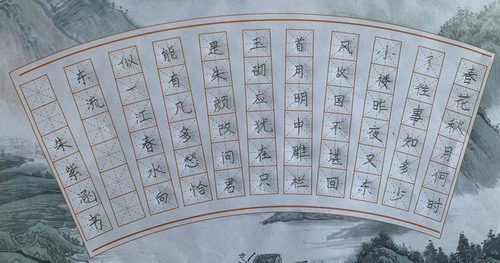 春花秋月何时
了往事知多少
小楼昨夜又东
风故国不堪回
首月明中雕栏
玉砌应犹在只
是朱颜改问君
能有几多愁恰
似一江春水向
东流
朱紫涵书